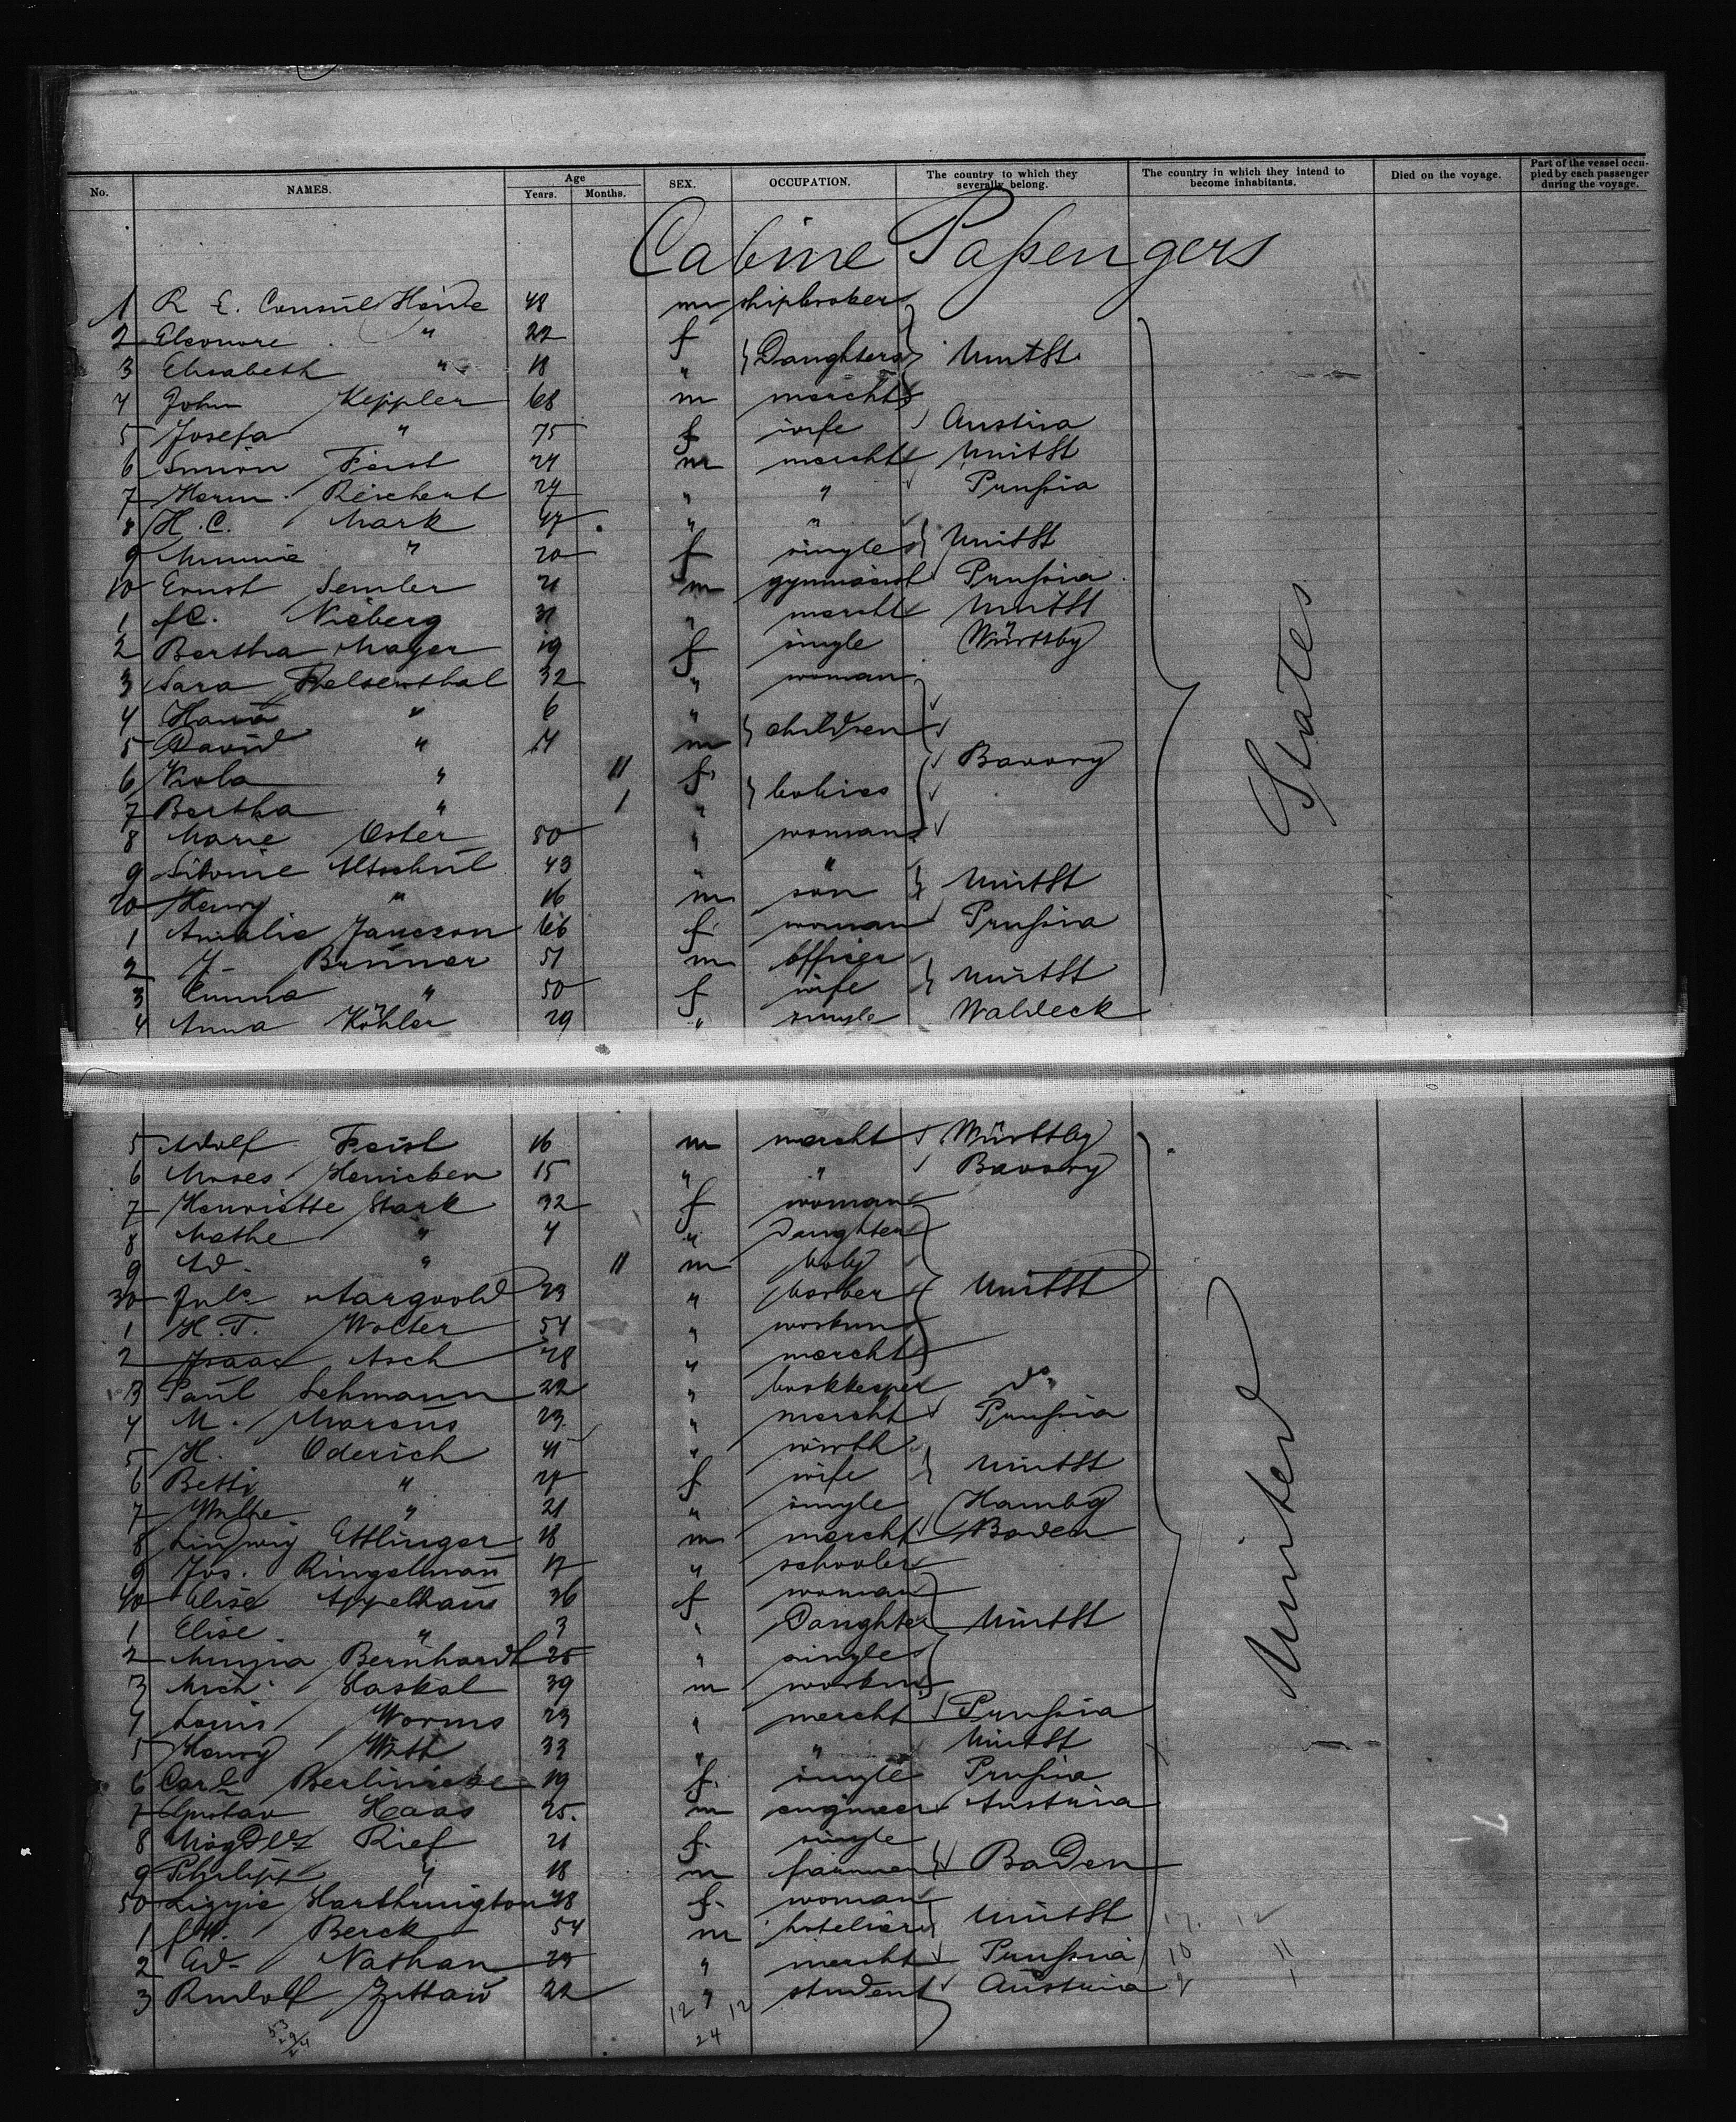 No. NAMES. Age Years. Months. SEX. OCCUPATION. The country to which they severally belong. The country in which they intend to become inhabitants. Died on the voyage. Part of the vessel occupied by each passenger during the voyage.
Cabine Paßengers
1 R. E. Consul 48 m shipbroker
2 Eleonore " 22 f
Daughters UnitSt
3 Elisabeth " 18 "
4 John Keppler 68 m mercht
5 Josefa " 75 f wife Austria
6 Feist 24 m mercht UnitSt
7 Herm. Reichert 24 " " Prußia
8 H. C. Mark 47 " "
9 Minnie " 20 f single UnitSt
10 Ernst Semler 21 m gymnasist Prußia
1 Nieberg 31 " mercht UnitSt
2 Bertha Mayer 19 f single Württbg
3 Sara Felsenthal 32 " woman
4 Hana " 6 "
children
5 David " 4 m
Bavary
6 " 11 f.
babies
7 Bertha " 1 "
8 Marie Oster 50 " woman
9 Sidonie Altschul 43 " "
UnitSt
20 Henry " 16 m son
1 Amalie 66 f. woman Prußia
2 J. Brünner 51 m officer
UnitSt
3 Emma " 50 f wife
4 Anna Köhler 29 " single Waldeck
5 Adolf Feist 16 m mercht Württbg
6 Moses 15 " " Bavary
7 Henriette Stark 32 f woman
8 Mathe " 4 " Daughter
9 Ad. " 11 m baby
30 Juls 23 " barber UnitSt
1 H. T. Wolter 54 " workm
2 Isaac Asch 48 " mercht
3 Paul Lehmann 22 " bookkeeper do
4 M. Marcus 23 " mercht Prußia
5 H. Oderich 41 " wirth
UnitSt
6 Betti " 24 f wife
7 " 21 " single Hambg
8 Ludwig Ettlinger 18 m mercht Baden
9 Jos. Ringelmañ 17 " schooler
40 Elise Appelhans 36 f woman
1 Elise " 3 " Daughter UnitSt
2 Bernhardt 25 " single
3 Mich. Haskel 39 m workm
4 Louis Worms 23 " mercht Prußia
5 Henry Witt 33 " " UnitSt
6 19 f. single Prußia
7 Gustav Haas 25. m engineer Austria
8 Rief 21 f. single
Baden
9 Philipp " 18 m farmer
50 Lizzie Harthrington 48 f. woman
UnitSt
1 Berck 54 m hotelier
2 Ad. Nathan 23 " mercht Prußia
3 Rudolf Zittau 22 " student Austria
United States
12 12
24
53
29
24